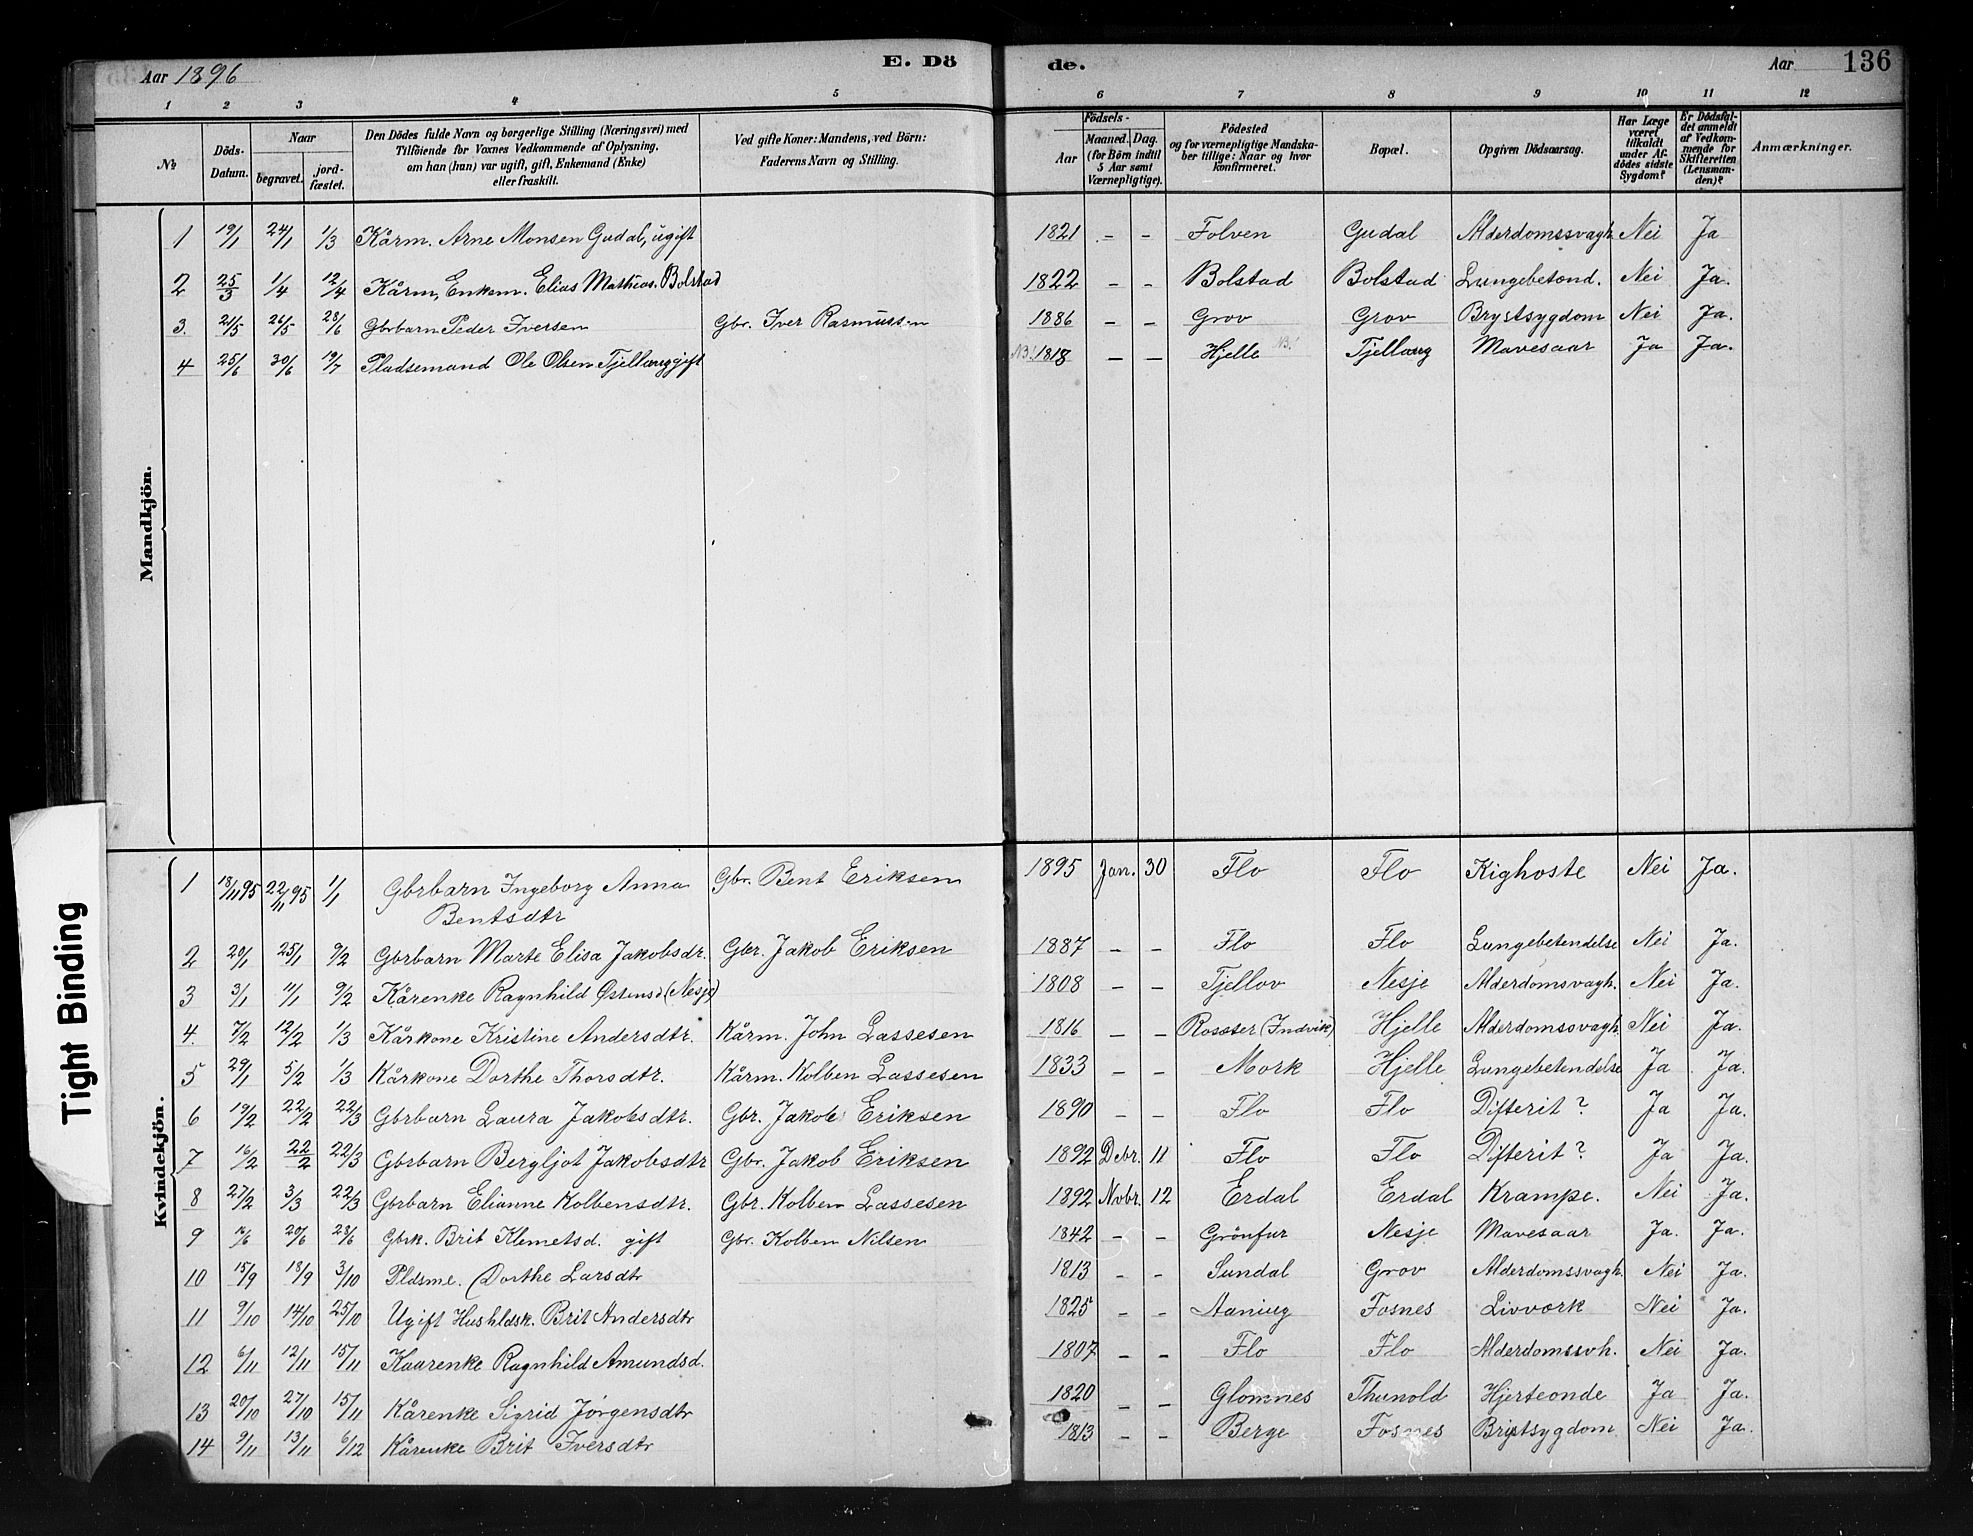 Aar 1896 E. Dö de. Aar 136
1 2 3 4 5 6 7 8 9 10 11 12
№ Döds-Datum. Naar begravet. jordfæstet. Den Dödes fulde Navn og borgerlige Stilling (Næringsvei) med Tilföiende for Voxnes Vedkommende af Oplysning, om han (hun) var ugift, gift, Enkemand (Enke) eller fraskilt. Ved gifte Koner: Mandens, ved Börn: Faderens Navn og Stilling. Födsels- Aar Maaned. Dag. (for Börn indtil 5 Aar samt Værnepligtige). Födested og for værnepligtige Mandskaber tillige: Naar og hvor konfirmeret. Bopæl. Opgiven Dödsaarsag. Har Læge været tilkaldt under Afdödes sidste Sygdom? Er Dödsfaldet anmeldt af Vedkommende for Skifteretten (Lensmanden)? Anmærkninger.
Mandkjön.
1 19/1 24/1 1/3 Kårm. Arne Monsen Gudal, ugift 1821 - - Folven Gudal Alderdomssvagh. Nei Ja
2 25/3 1/4 12/4 Kårm, Enkem. Elias Mathias. Bolstad 1822 - - Bolstad Bolstad Lungebetænd. Nei Ja.
3. 21/5 26/5 28/6 Gbrbarn Peder Iversen Gbr. Iver Rasmussen 1886 - - Grov Grov Brystsygdom Nei Ja.
4 25/6 30/6 19/7 Pladsemand Ole Olsen Tjellaug gift NB! 1818 - - Hjelle NB! Tjellaug Mavesaar Ja Ja.
Kvindekjön.
1 18/11 95 22/11 95 1/1 Gbrbarn Ingeborg Anna Gbr. Bent Eriksen 1895 Jan. 30 Flo Flo Kighoste Nei Ja.
Bentsdtr
2 20/1 25/1 9/2 Gbrbarn Marte Elisa Jakobsdtr. Gbr. Jakob Eriksen 1887 - - Flo Flo Lungebetendelse Nei Ja.
3 3/1 11/1 9/2 Kårenke Ragnhild Østensd (Nesje) 1808 - - Tjellov Nesje Alderdomsvagh. Nei Ja.
4. 7/2 12/2 1/3 Kårkone Kristine Andersdtr. Kårm. John Lassesen 1816 - - Rosæter (Indvik) Hjelle Alderdomssvagh. Nei Ja.
5 29/1 5/2 1/3 Kårkone Dorthe Thorsdtr. Kårm. Kolben Lassesen 1833 - - Mork Hjelle Lungebetendelse Ja Ja.
6 19/2 22/2 22/3 Gbrbarn Laura Jakobsdtr. Gbr. Jakob Eriksen 1890 - - Flo Flo Difterit? Ja Ja.
7 16/2 22/2 22/3 Gbrbarn Bergljot Jakobsdtr Gbr. Jakob Eriksen 1892 Debr. 11 Flo Flo Difterit? Ja Ja.
8 27/2 3/3 22/3 Gbrbarn Elianne Kolbensdtr. Gbr. Kolben Lassesen 1892 Nvbr. 12 Erdal Erdal Krampe. Nei Ja.
9 20/6 28/6 Gbrk. Brit Klemetsd. gift Gbr. Kolben Nilsen 1842 - - Grönfur Nesje Mavesaar Ja. Ja.
10 15/9 18/9 3/10 Pldsme. Dorthe Larsdtr 1813 - - Sundal Grov Alderdomssvagh. Nei Ja.
11 9/10 14/10 25/10 Ugift Hushldsk. Brit Andersdtr 1825 - - Aaning Fosnes Livværk Nei Ja.
12 6/11 12/11 15/11 Kaarenke Ragnhild Amundsd. 1807 - - Flo Flo Alderdomssvh. Nei Ja.
13 20/10 27/10 15/11 Kårenke Sigrid Jørgensdtr 1820 - - Glomnes Thunold Hjerteonde Ja Ja.
14 9/11 13/11 6/12 Kårenke Brit Iversdtr 1813 - - Berge Fosnes Brystsygdom Nei Ja.
Tight Binding